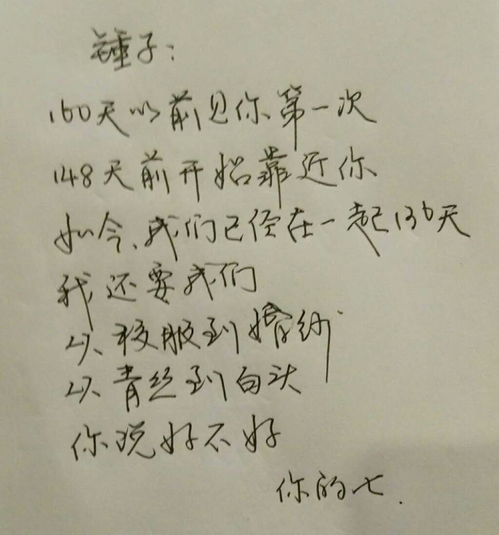 锤子：
160天以前见你第一次
148天前开始靠近你
如今、我们已经在一起136天
我还要我们
以校服到婚纱
以青丝到白头
你说好不好
你的七.